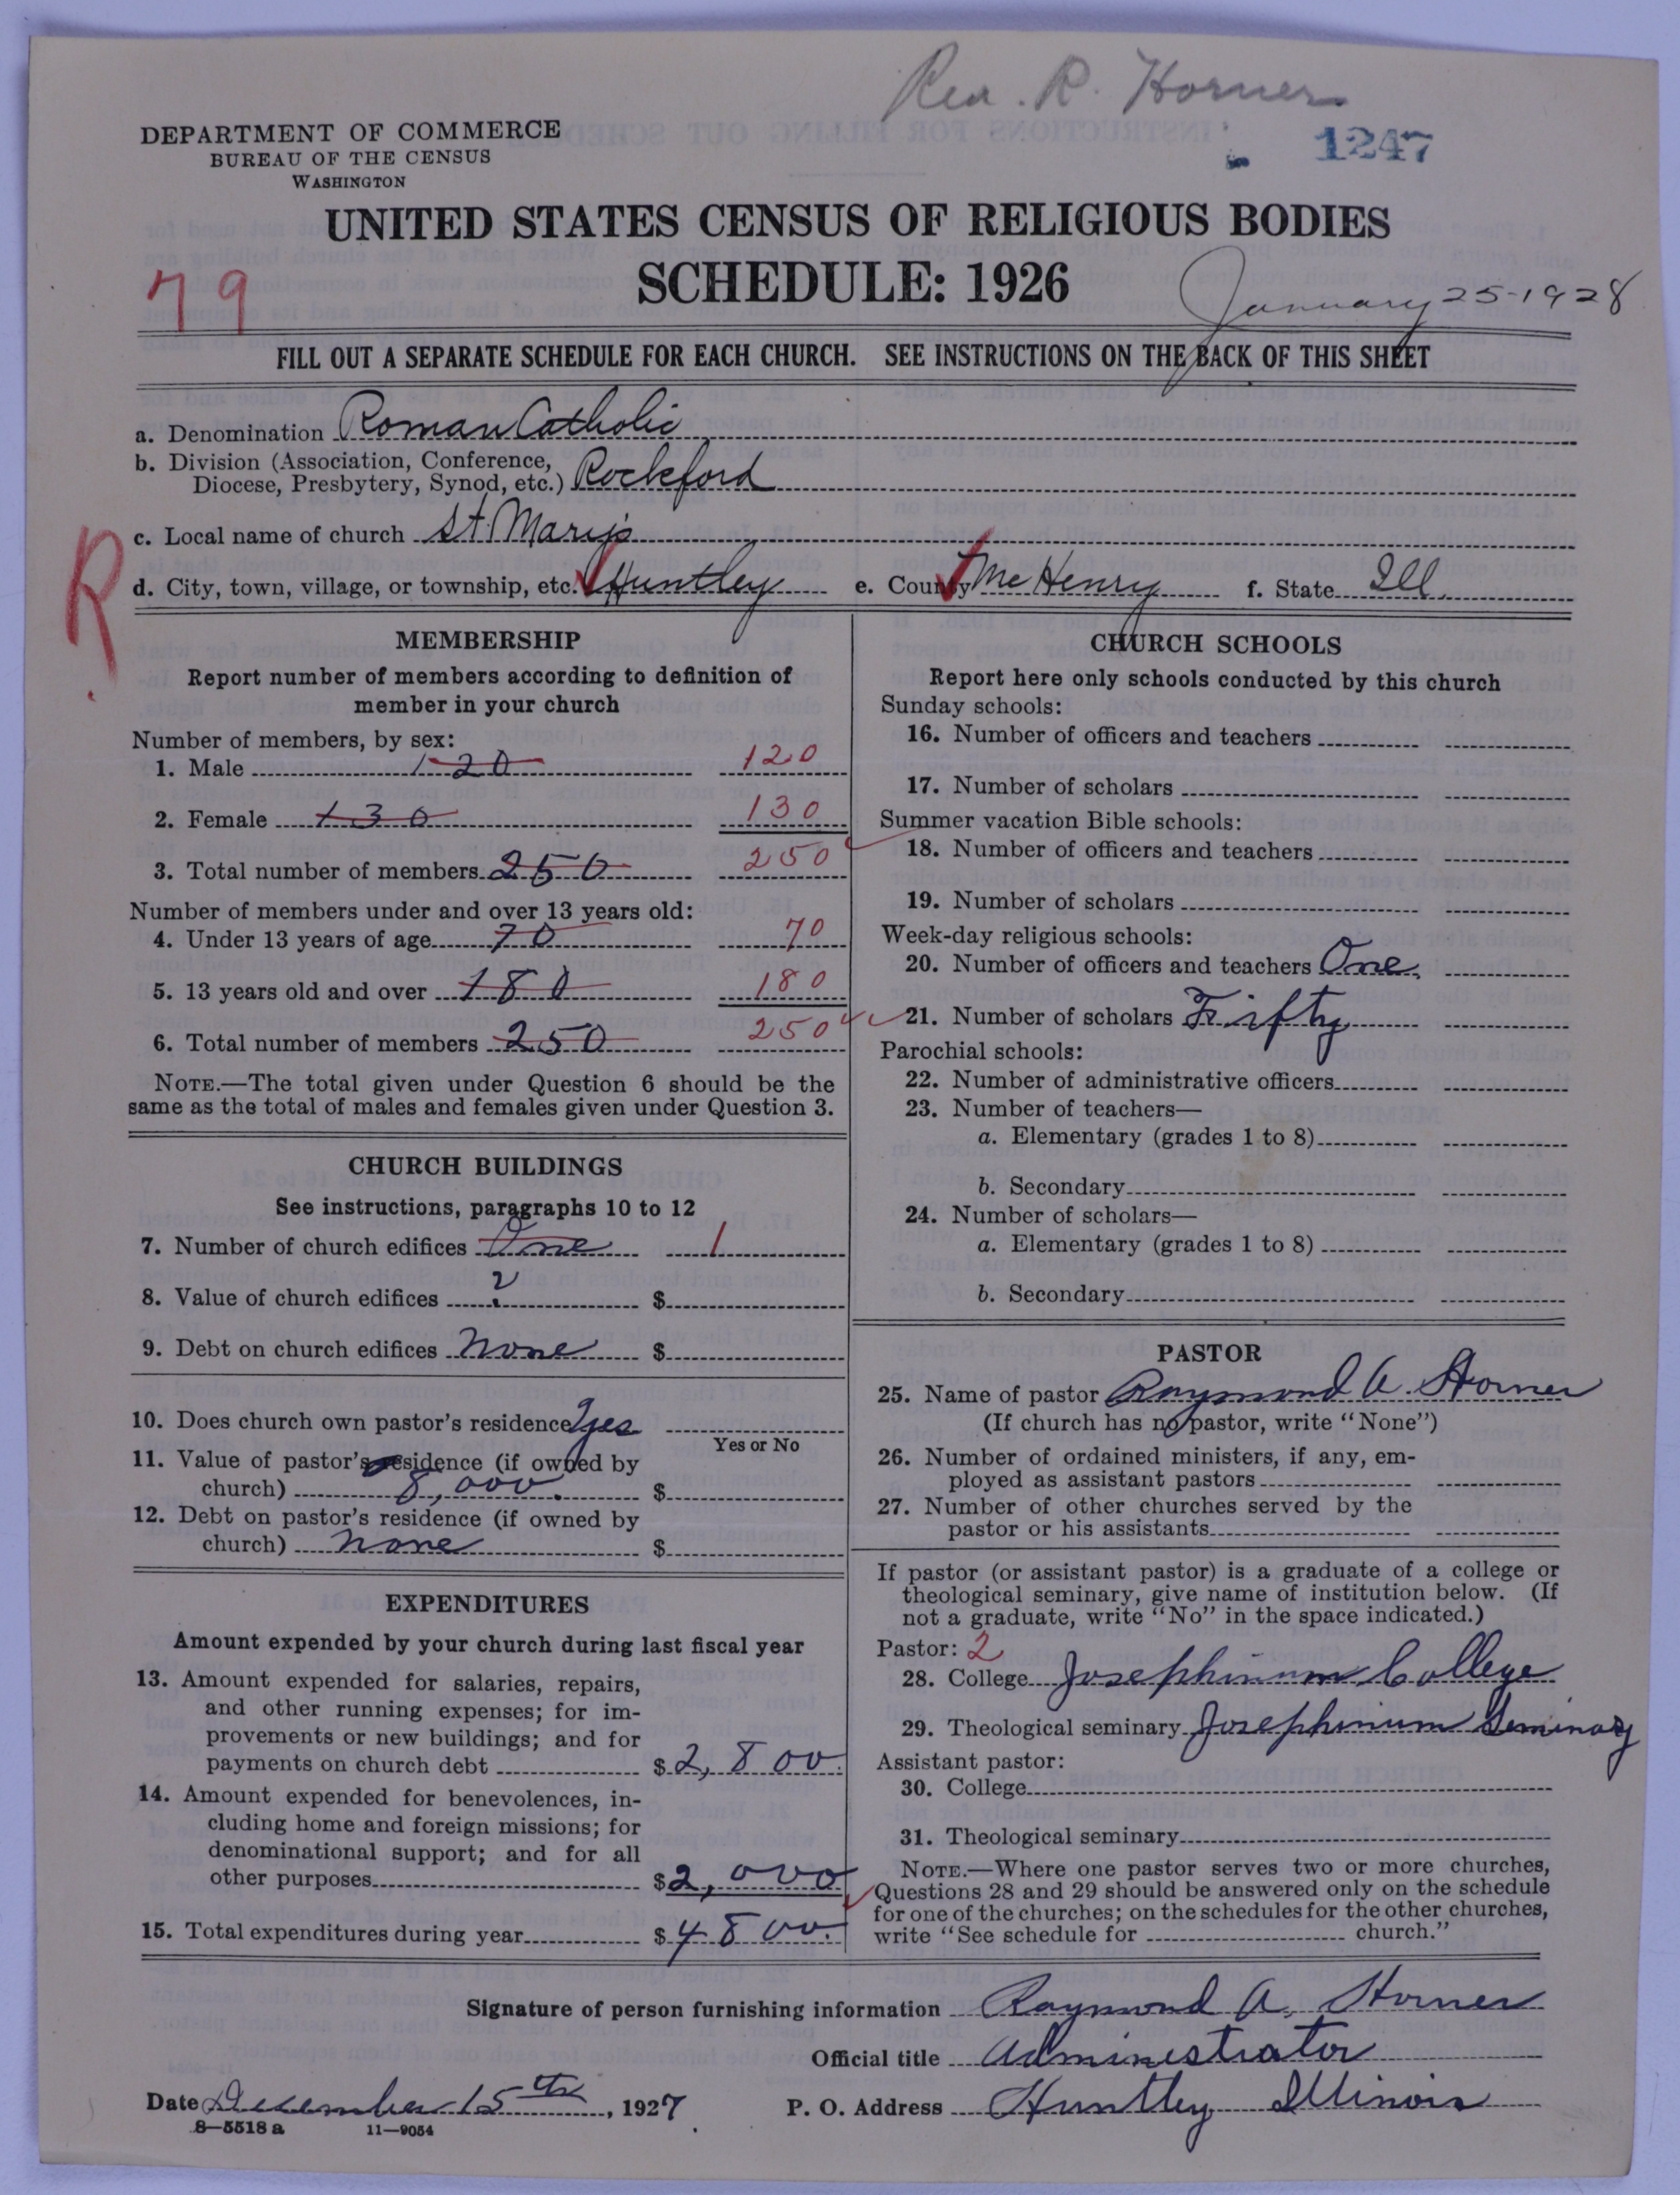 Rev. R. Horner
1247
DEPARTMENT OF COMMERCE
BUREAU OF THE CENSUS
WASHINGTON
UNITED STATES CENSUS OF RELIGIOUS BODIES
SCHEDULE: 1926
79
January 25-1928
FILL OUT A SEPARATE SCHEDULE FOR EACH CHURCH. SEE INSTRUCTIONS ON THE BACK OF THIS SHEET
a. Denomination Roman Catholic
b. Division (Association, Conference,
Diocese, Presbytery, Synod, etc.) Rockford
R
c. Local name of church St. Mary's
d. City, town, village, or township, etc. Huntley e. County Mc Henry f. State Ill.
MEMBERSHIP
Report number of members according to definition of
member in your church
Number of members, by sex:
1. Male 120 120
2. Female 130 130
3. Total number of members 250 250
Number of members under and over 13 years old:
4. Under 13 years of age 70 70
5. 13 years old and over 180 180
6. Total number of members 250 250
NOTE.—The total given under Question 6 should be the
same as the total of males and females given under Question 3.
CHURCH BUILDINGS
See instructions, paragraphs 10 to 12
7. Number of church edifices One 1
8. Value of church edifices ? $
9. Debt on church edifices None $
10. Does church own pastor's residence? yes
Yes or No
11. Value of pastor's residence (if owned by
church) 8,000. $
12. Debt on pastor's residence (if owned by
church) none $
EXPENDITURES
Amount expended by your church during last fiscal year
13. Amount expended for salaries, repairs,
and other running expenses; for im-
provements or new buildings; and for
payments on church debt $2,800.
14. Amount expended for benevolences, in-
cluding home and foreign missions; for
denominational support; and for all
other purposes $2,000
15. Total expenditures during year $4800.
CHURCH SCHOOLS
Report here only schools conducted by this church
Sunday schools:
16. Number of officers and teachers
17. Number of scholars
Summer vacation Bible schools:
18. Number of officers and teachers
19. Number of scholars
Week-day religious schools:
20. Number of officers and teachers One
21. Number of scholars Fifty
Parochial schools:
22. Number of administrative officers
23. Number of teachers—
a. Elementary (grades 1 to 8)
b. Secondary
24. Number of scholars—
a. Elementary (grades 1 to 8)
b. Secondary
PASTOR
25. Name of pastor Raymond A. Horner
(If church has no pastor, write "None")
26. Number of ordained ministers, if any, em-
ployed as assistant pastors
27. Number of other churches served by the
pastor or his assistants
If pastor (or assistant pastor) is a graduate of a college or
theological seminary, give name of institution below. (If
not a graduate, write "No" in the space indicated.)
Pastor: 2
28. College Josephinum College
29. Theological seminary Josephinum Seminary
Assistant pastor:
30. College
31. Theological seminary
NOTE.—Where one pastor serves two or more churches,
Questions 28 and 29 should be answered only on the schedule
for one of the churches; on the schedules for the other churches,
write "See schedule for church."
Signature of person furnishing information Raymond A. Horner
Official title Administrator
Date December 15th, 1927 P. O. Address Huntley Illinois
8—5518 a 11—9054